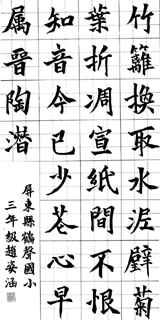 竹籬換取水泥壁菊
葉折凋宣紙間不恨
知音今已少芳心早
属晉陶潛
屏東縣鶴聲國小
三年級趙姿涵